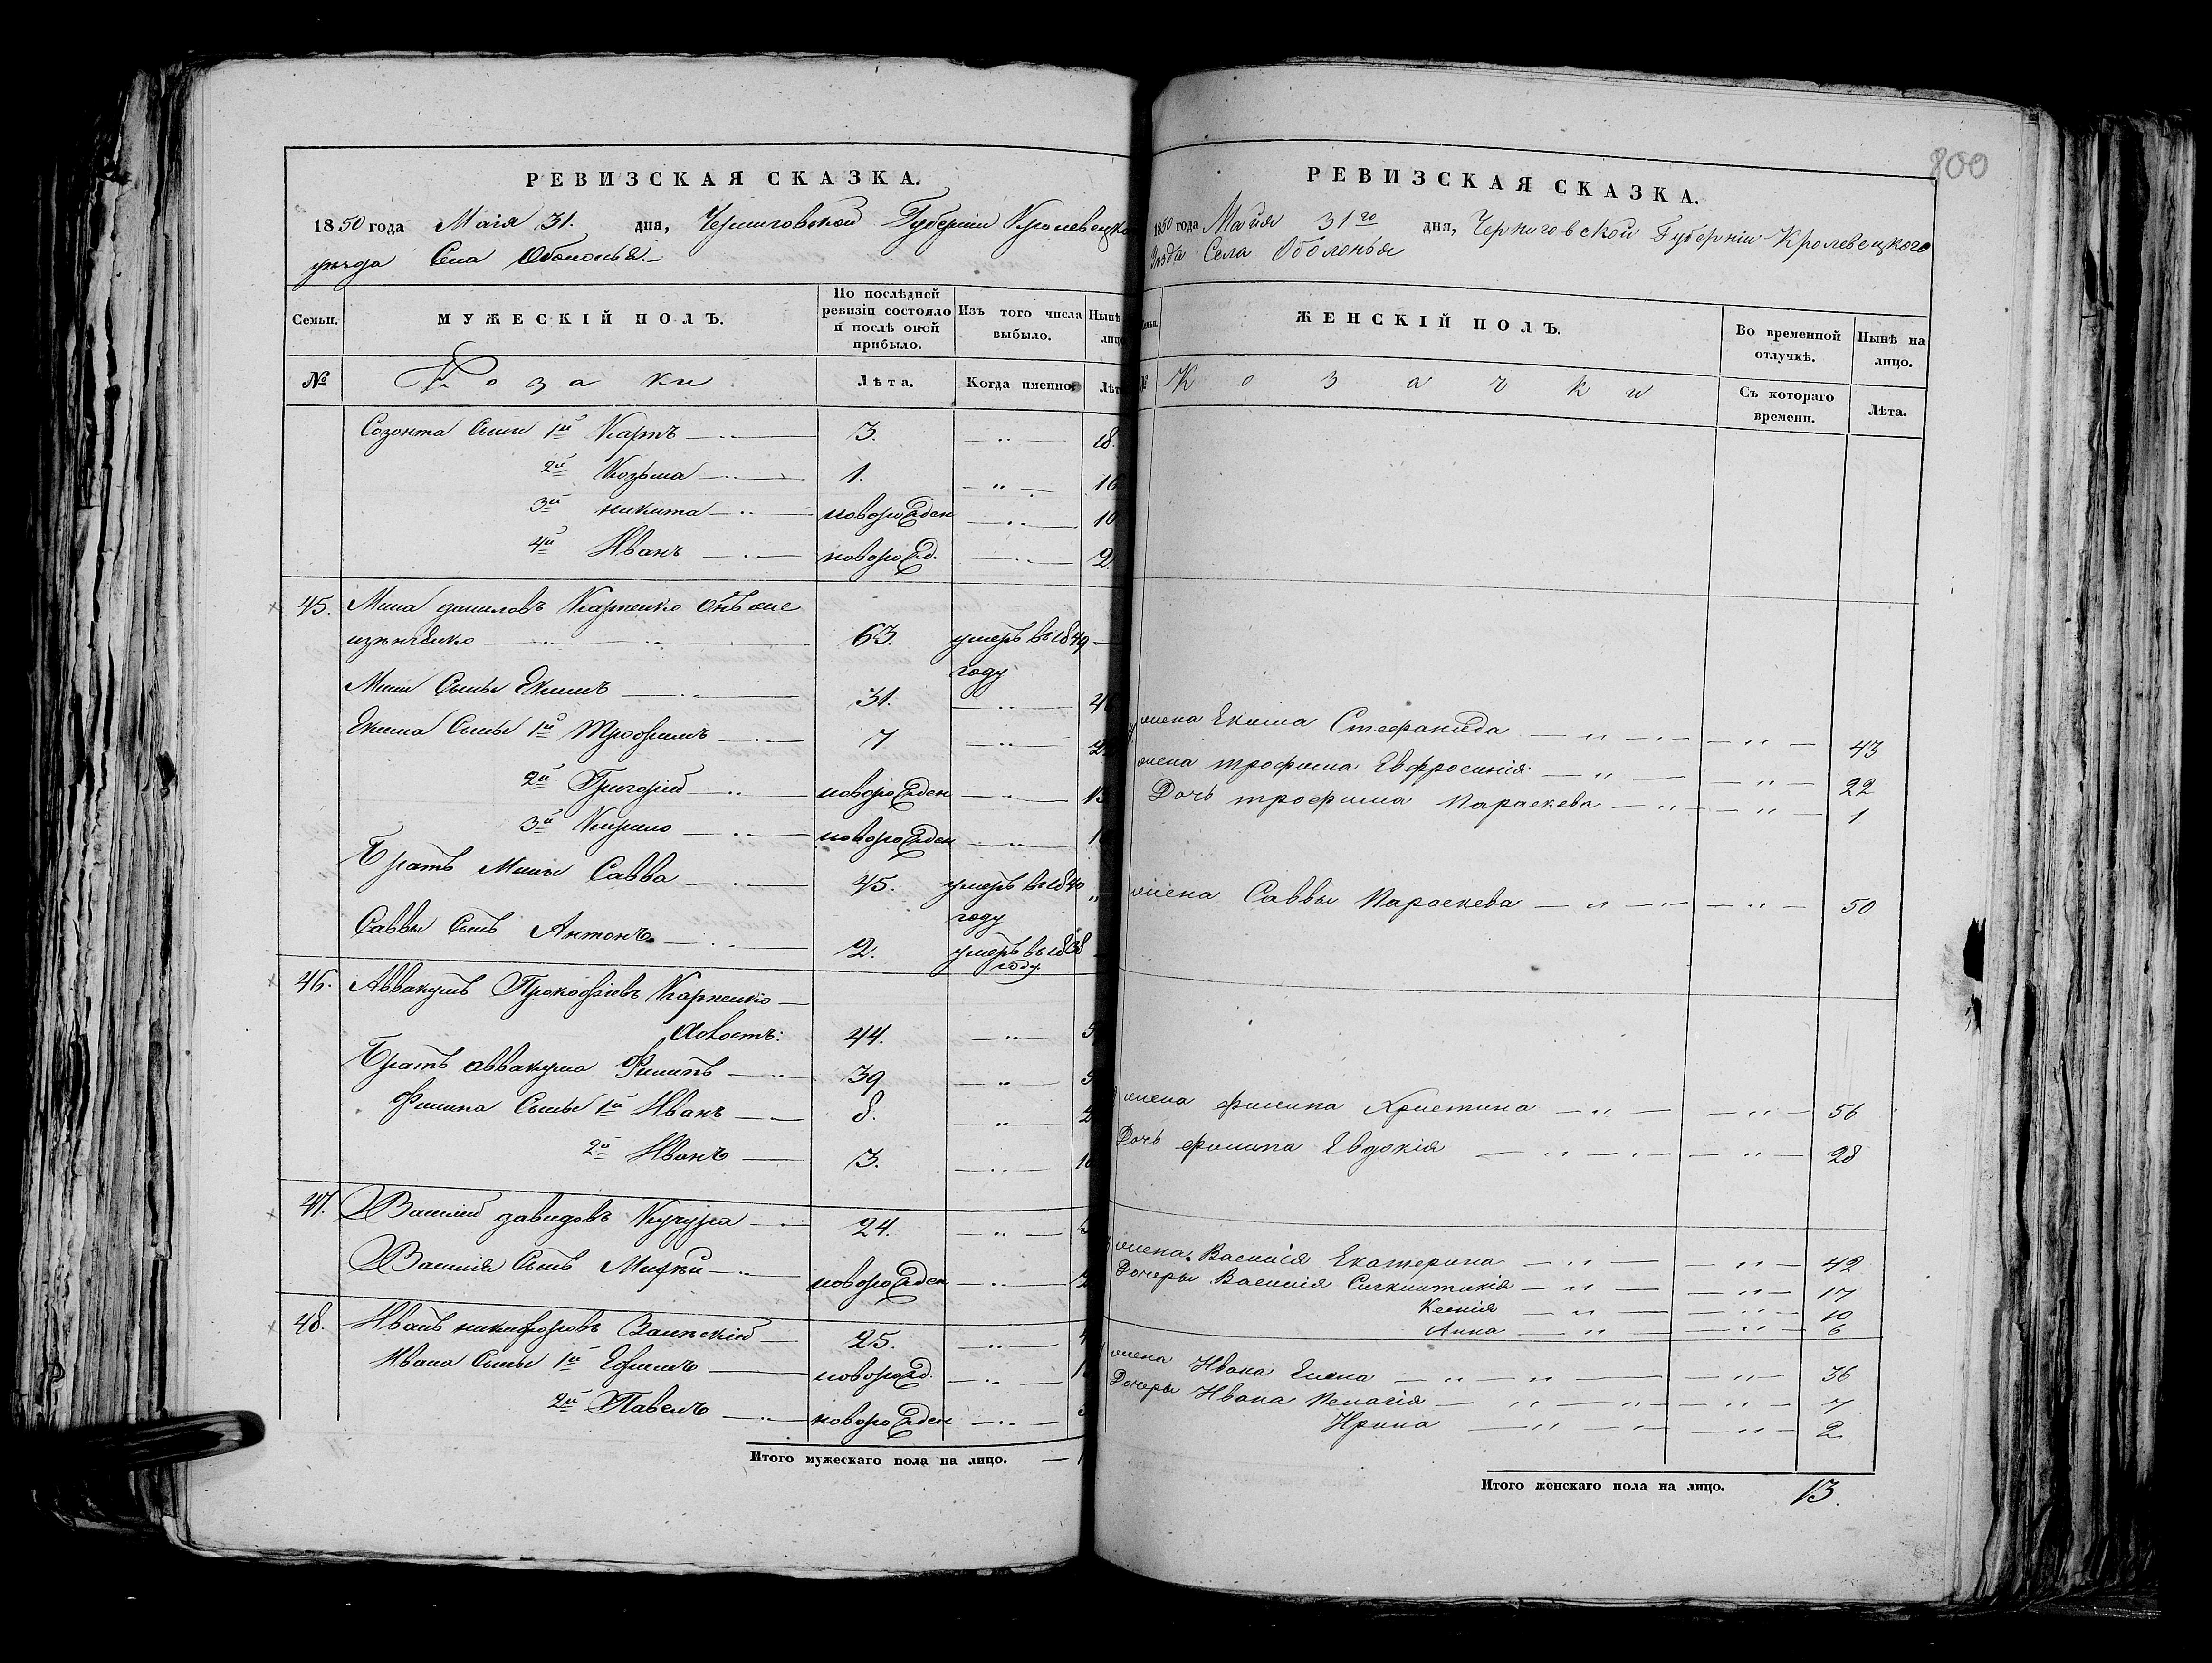 РЕВИЗСКАЯ СКАЗКА.
1850 года Маія 31. дня, Черниговской Губерніи Кролевецко
уезда Села Оболонья.
Семьи. МУЖЕСКІЙ ПОЛЪ. По послѣдней ревизіи состояло и послѣ оной прибыло. Изъ того числа выбыло. Нынѣ лицо
№ Козаки Лѣта. Когда именно. Лѣт
Созонта Сыны 1й Карпъ 3. 18.
2й Козьма 1. 16
3й никита новорожден 10
4й Иванъ новорожд. 2.
45. Мина даниловъ Карпенко Онъ же
63. умеръ въ 1849
году
Мины Сынъ Екимъ 31. 46
Екима Сыны 1й Трофимъ 7
2й Григорій новорожден
3й Кирило новорожден
Братъ Мины Савва 45. умеръ въ 1840
году
Саввы Сынъ Антонъ 2. умеръ въ 1838
году.
46. Аввакумъ Прокофіевъ Карпенко
44.
Братъ аввакума Филипъ 39
Филипа Сыны 1й Иванъ 8.
2й Иванъ 3.
47. Василій давидовъ Кучура 24.
Василія Сынъ новорожден
48. Иванъ никифоровъ 25.
Ивана Сыны 1й Ефимъ новорожд.
2й Павелъ новорожден
Итого мужескаго пола на лицо.
800
РЕВИЗСКАЯ СКАЗКА.
1850 года Майя 31го дня, Черниговской Губерніи Кролевецкого
Уезда Села Оболонья
Семьи. ЖЕНСКІЙ ПОЛЪ. Во временной отлучкѣ. Нынѣ на лицо.
№ Козачки Съ котораго времени. Лѣта.
жена Екима Стефанида 43
жена трофима Евфросинія 22
Дочь трофима Параскева 1
жена Саввы Параскева 50
жена филипа Христина 56
Дочь филипа Евдокія 28
жена Василія Екатерина 42
Дочеры Василія 17
Ксенія 10
Анна 6
жена Ивана Елена 36
Дочеры Ивана Пелагія 7
Ирина 2
Итого женскаго пола на лицо. 13.